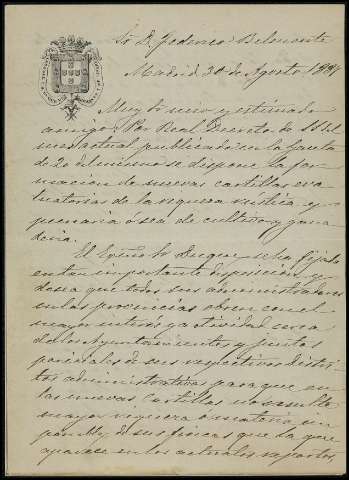 Sr. D. Federico Belmonte
Madrid 30 de Agosto 1894
Muy Sr. mio y estimado
amigo: Por Real Decreto de 14 del
mes actual publicado en la Gaceta
de 20 del mismo se dispone la for-
macion de nuevas cartillas eva-
luatorias de la riqueza rústica y
pecuaria ó sea de cultivo y gana
deria.
El Excmo Sr Duque se ha fijado
en tan importante disposicion y
desea que todos sus administradores
en las provincias obren con el
mayor interes y actividad cerca
de los Ayuntamientos y Juntas
periciales de sus respectivos distri-
tos administrativos para que en
las nuevas Cartillas no resulte
mayor riqueza ó materia im
ponible de sus fincas que la que
aparece en los actuales repartos,